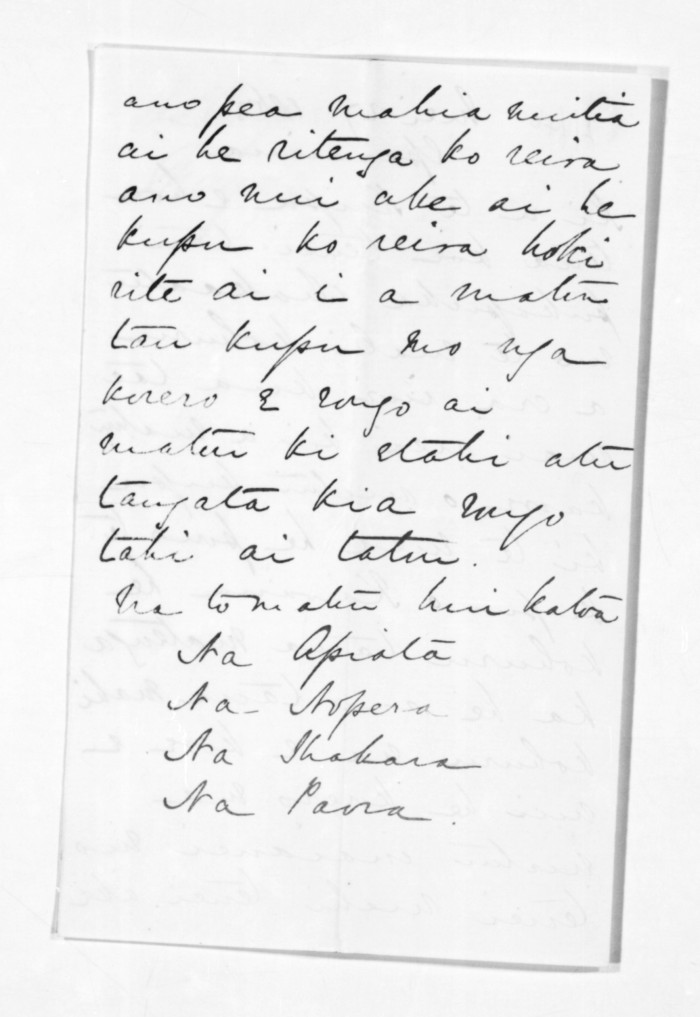 ano pea mahia nuitia
ai he ritenga ko reira
ano nui ake ai he
kupu ko reira hoki
rite ai i a matu
tau kupu mo nga
korero E rongo ai
matu ki etahi atu
tangata kia rongo
tahi ai tatu.
Na to matu hui katoa
Na Apiata
Na Nopera
Na Ihakara
Na Paora.